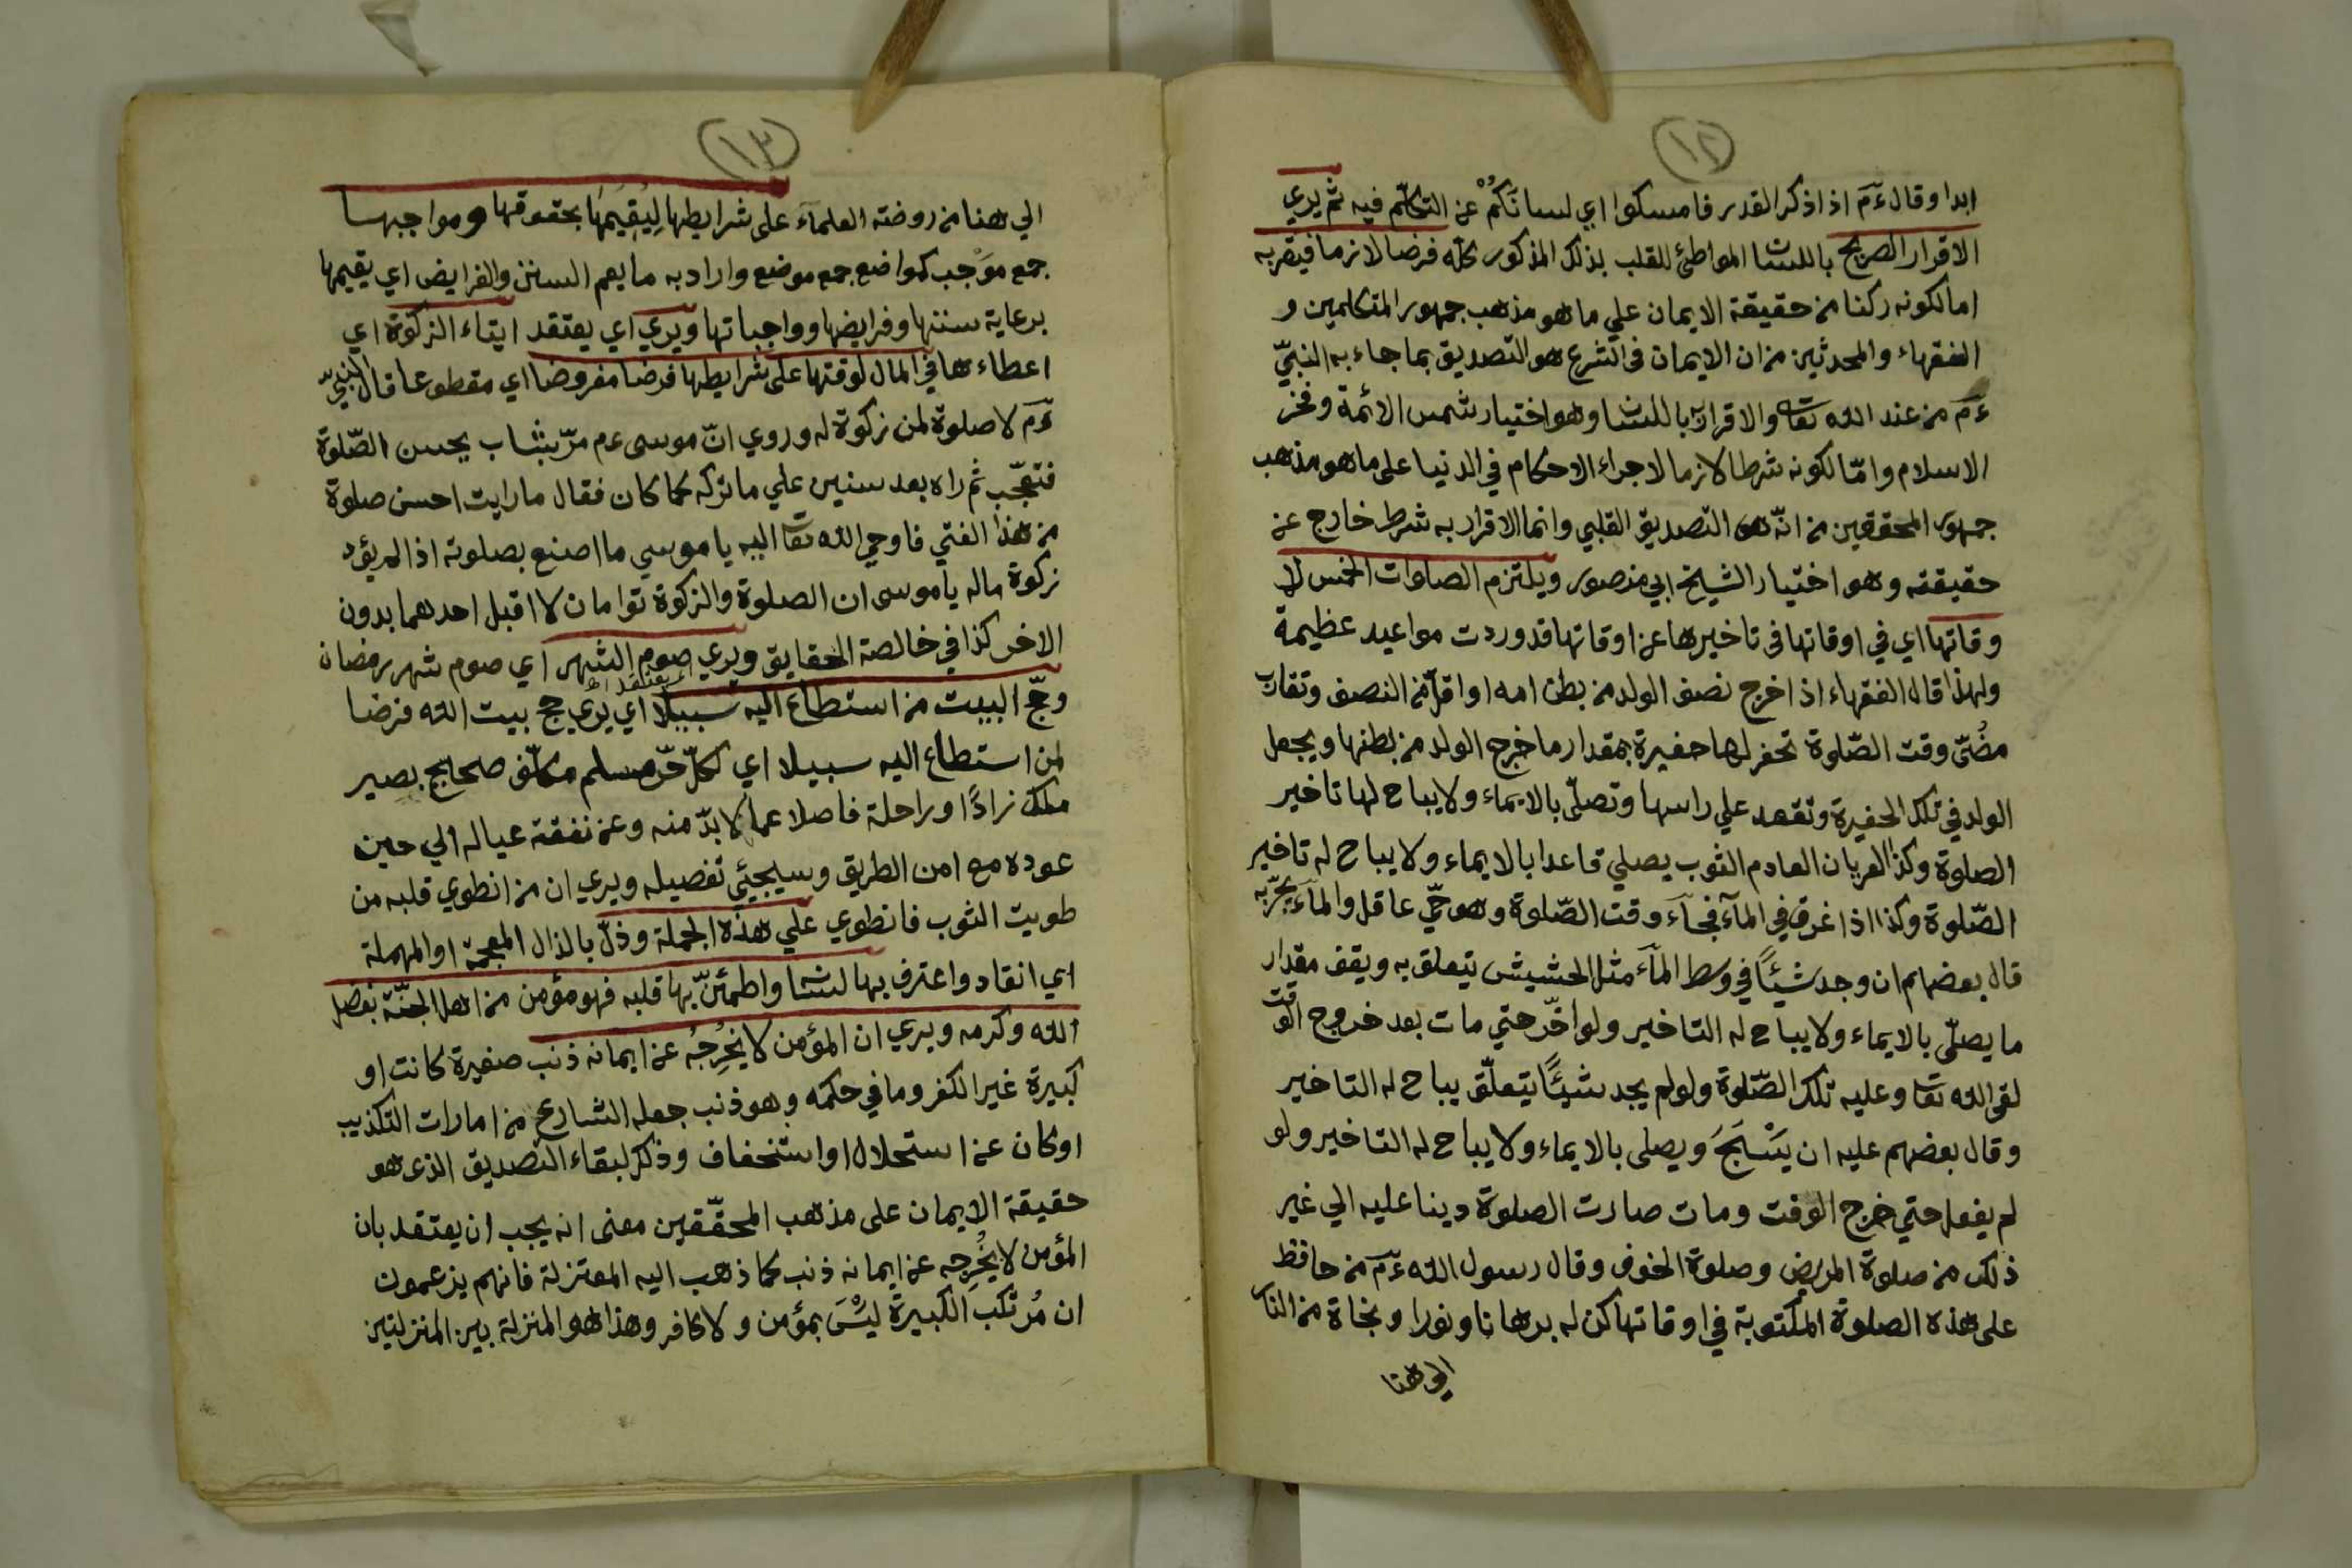 (١٢)
ابدا وقال ءم اذا ذكر القدر فامسكوا اي لسانَكُمْ عن التكلّم فيه ثم يري
الاقرار الصريح باللسان المواطئ للقلب بذلك المذكور كلّه فرضا لازما فيقرّ به
اما لكونه ركنا من حقيقة الايمان علي ما هو مذهب جمهور المتكلمين و
الفقهاء والمحدثين من ان الايمان في الشرع هو التصديق بما جاء به النبيّ
ءم من عند الله تعا والاقرار به باللسان وهو اختيار شمس الائمة وفخر
الاسلام وامّا لكونه شرطا لازما لاجراء الاحكام في الدنيا على ما هو مذهب
جمهور المحققين من انّه هو التصديق القلبي وانما الاقرار به شرط خارج عن
حقيقته وهو اختيار الشيخ ابي منصور ويلتزم الصلوات الخمس لا
وقاتها اي في اوقاتها في تاخيرها عن اوقاتها قد وردت مواعيد عظيمة
ولهذا قال الفقهاء اذا خرج نصف الولد من بطن امه او اقلّ من النصف وتقارب
مضُىّ وقت الصّلوة تحفر لها حفيرة بمقدار ما خرج الولد من بطنها ويجعل
الولد في تلك الحفيرة وتقعد علي راسها وتصلّى بالايماء ولا يباح لها تاخير
الصلوة وكذا العريان العادم الثوب يصلي قاعدا بالايماء ولا يباح له تاخير
الصّلوة وكذا اذا غرق في المآء فجآء وقت الصّلوة وهو حيّ عاقل والمآء يجرّ به
قال بعضهم ان وجد شيئًا في وسط المآء مثل الحشيش تيعلق به ويقف مقدار
ما يصلّى بالايماء ولا يباح له التاخير ولو اخّر حتي مات بعد خروج الوقت
لقي الله تعا وعليه تلك الصّلوة ولو لم يجد شيئًا يتعلّق يباح له التاخير
وقال بعضهم عليه ان يَسْبَحَ ويصلى بالايماء ولا يباح له التاخير ولو
لم يفعل حتي خرج الوقت ومات صارت الصلوة دينا عليه الي غير
ذلك من صلوة المريض وصلوة الخوف وقال رسول الله ءم من حافظ
على هذه الصلوة المكتوبة في اوقاتها كن له برهانا ونورا ونجاة من النار
الي هنا
(١٣)
الي هنا من روضته العلمآء على شرايطها لِيُقِيمَهَا بحقوقها ومواجبها
جمع مَوْجب كمواضع جمع موضع واراد به ما يعم السنن والفرايض اي يقيمها
برعاية سننها وفرايضها وواجباتها ويري اي يعتقد ايتاء الزكوة اي
اعطاءها في المال لوقتها على شرايطها فرضا مفروضا اي مقطوعا قال النبيّ
ءم لا صلوة لمن زكوة له وروي انّ موسى عم مرّ بشاب يحسن الصّلوة
فتعجّب ثم راه بعد سنين علي ما تركه كما كان فقال ما رايت احسن صلوة
من هذا الفتي فاوحي الله تعا اليه يا موسي ما اصنع بصلوته اذا لم يؤد
زكوة ماله يا موسى ان الصلوة والزكوة توامان لا اقبل احدهما بدون
الاخر كذا في خالصة الحقايق ويري صوم الشهر اي صوم شهر رمضان
وحجّ البيت من استطاع اليه سبيلا اي يري حج بيت الله فرضا
لمن استطاع اليه سبيلا اي لكلّ حّر مسلم مكلّف صحيح بصير
ملك زادًا وراحلة فاصلا عما لا بدّ منه وعن نفقة عياله الي حين
عوده مع امن الطريق وسيجئي تفصيله ويري ان من انطوي قلبه من
طويت الثوب فانطوي علي هذه الجملة وذلّ بالذال المعجمة او المهملة
اي انقاد واعترف بها لسانا واطمئنّ بها قلبه فهو مؤمن من اهل الجنّة بفضل
الله وكرمه ويري ان المؤمن لا يُخرِجُه عن ايمانه ذنب صغيرة كانت او
كبيرة غير الكفر وما في حكمه وهو ذنب جعله الشارع من امارات التكذيب
او كان عن استحلال او استخفاف وذكر لبقاء التصديق الذي هو
حقيقة الايمان على مذهب المحقّقين معنى انه يجب ان يعتقد بان
المؤمن لا يُخْرِجه عن ايمانه ذنب كما ذهب اليه المعتزلة فانهم يزعمون
ان مُرتكب الكبيرة ليْسَ بمؤمن ولا كافر وهذا هو المنزلة بين المنزلتين